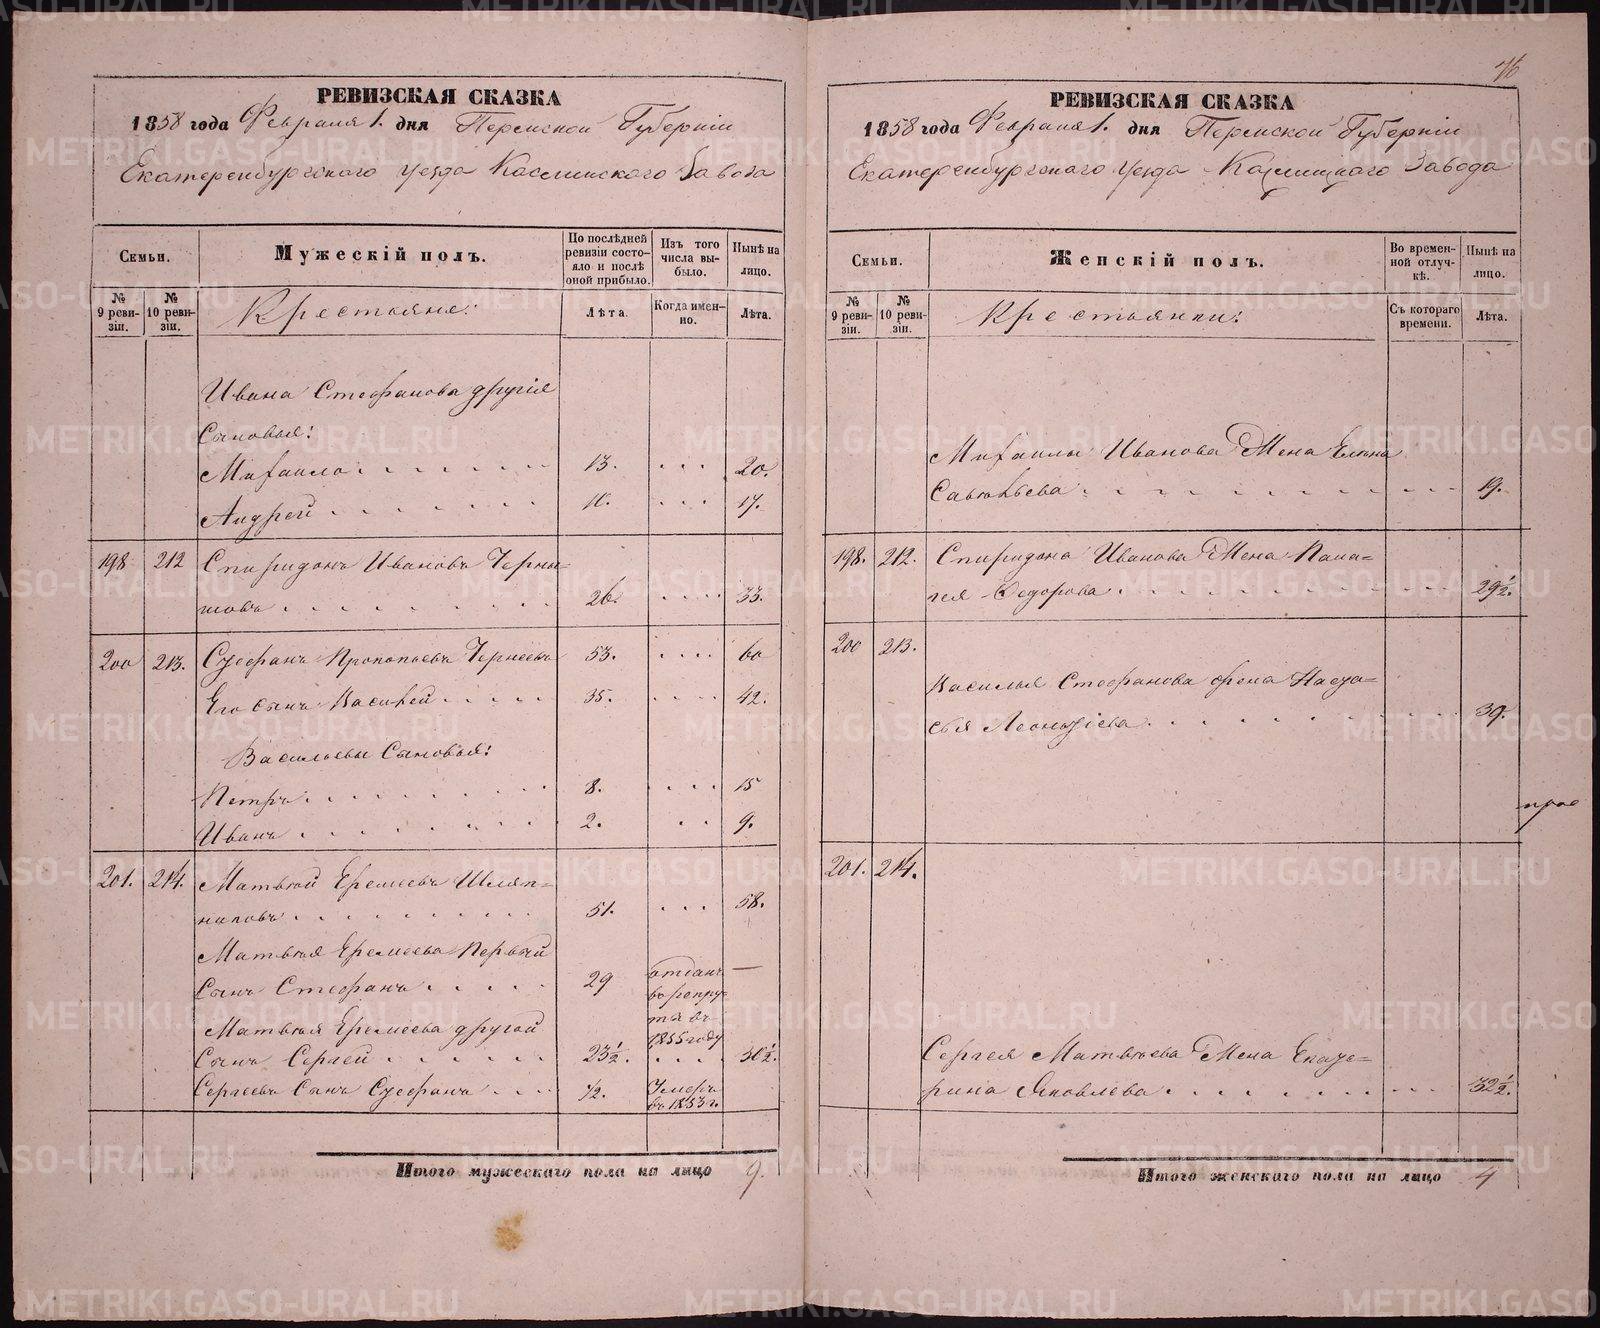 76
РЕВИЗСКАЯ СКАЗКА
1858 года Февраля 1. дня Пермской Губерніи
Екатеринбургскаго уезда Каслинскаго Завода
Семьи.
Мужескій полъ.
По послѣдней ревизіи состояло и послѣ оной прибыло.
Изъ того числа выбыло.
Нынѣ на лицо.
№ 9 ревизіи.
№ 10 ревизіи.
Крестьяне:
Лѣта.
Когда именно.
Лѣта.
Ивана Стефанова другія
Сыновья:
Михаило 13. 20.
Андрей 10. 17.
198 212 Спиридонъ Ивановъ Черны-
шовъ 26. 33.
200 213. Стефанъ Прокопьевъ Чернеевъ 53. 60
Его сынъ Василей 35. 42.
Васильевы Сыновья:
Петръ 8. 15
Иванъ 2. 9.
201. 214. Матвѣй Еремеевъ Шляп-
никовъ 51. 58.
Матвѣя Еремеева Первый
Сынъ Стефанъ 29 отданъ —
въ рекру-
ты въ
1855 году
Матвѣя Еремеева другой
Сынъ Сергей 23½. 30½.
Сергеевъ Сынъ Стефанъ ½. Умеръ
въ 1853 г.
Итого мужескаго пола на лицо 9.
РЕВИЗСКАЯ СКАЗКА
1858 года Февраля 1. дня Пермской Губерніи
Екатеринбургскаго уезда Каслинскаго Завода
Семьи.
Женскій полъ.
Во временной отлучкѣ.
Нынѣ на лицо.
№ 9 ревизіи.
№ 10 ревизіи.
Крестьянки:
Съ котораго времени.
Лѣта.
Михаилы Иванова Жена Елена
Савельева 19.
198. 212. Спиридона Иванова Жена Пала-
гея Федорова 29½.
200 213.
Василья Стефанова жена Настa-
сья Леонтіева 39.
201. 214.
Сергея Матвѣева Жена Екате-
рина Яковлева 32½.
Итого женскаго пола на лицо 4
METRIKI.GASO-URAL.RU